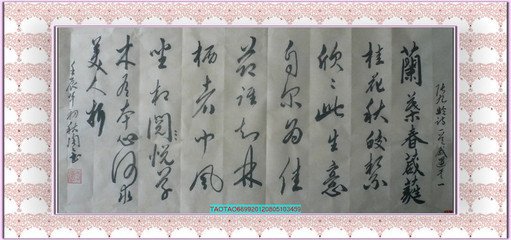 張九齡詩
蘭葉春葳蕤
桂花秋皎潔
欣〻此生意
自尔為佳
節誰知林
栖者聞風
坐相閲悦草
木有本心何求
美人折
壬辰年初秋陶
TAOTAO669920120805103459